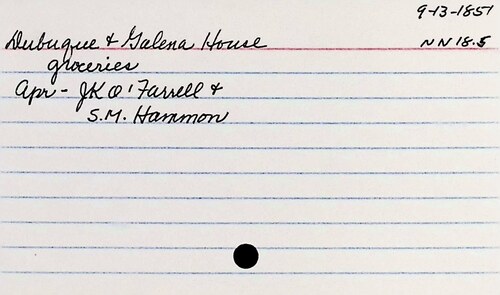 9-13-1851
Dubuque & Galena House
NN 18.5
groceries
Apr - JK O'Farrell &
S.M. Hammon